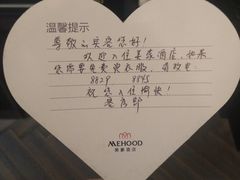 温馨提示
尊敬的宾客您好!
欢迎入住美豪酒店,如果
您需要免费洗衣服,请致电
8829 8845
祝您入住愉快!
客房部
MEHOOD
美豪酒店